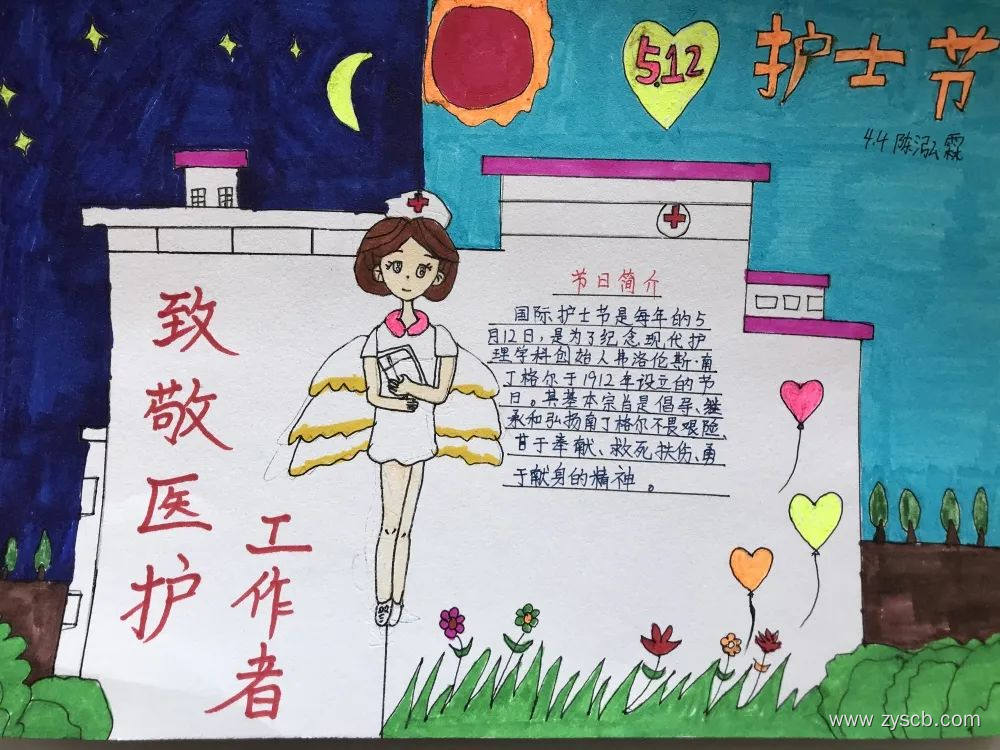 5.12
护士节
4.4 陈泓霖
致敬医护
工作者
节日简介
国际护士节是每年的5
月12日,是为了纪念现代护
理学科创始人弗洛伦斯·南
丁格尔于1912年设立的节
日。其基本宗旨是倡导、继
承和弘扬南丁格尔不畏艰险、
甘于奉献、救死扶伤、勇
于献身的精神。
www.zyscb.com